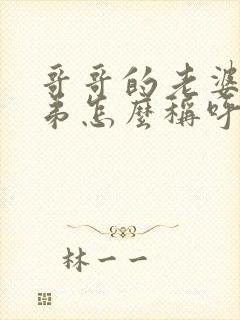 哥哥的老婆
弟怎麼稱呼
林一一